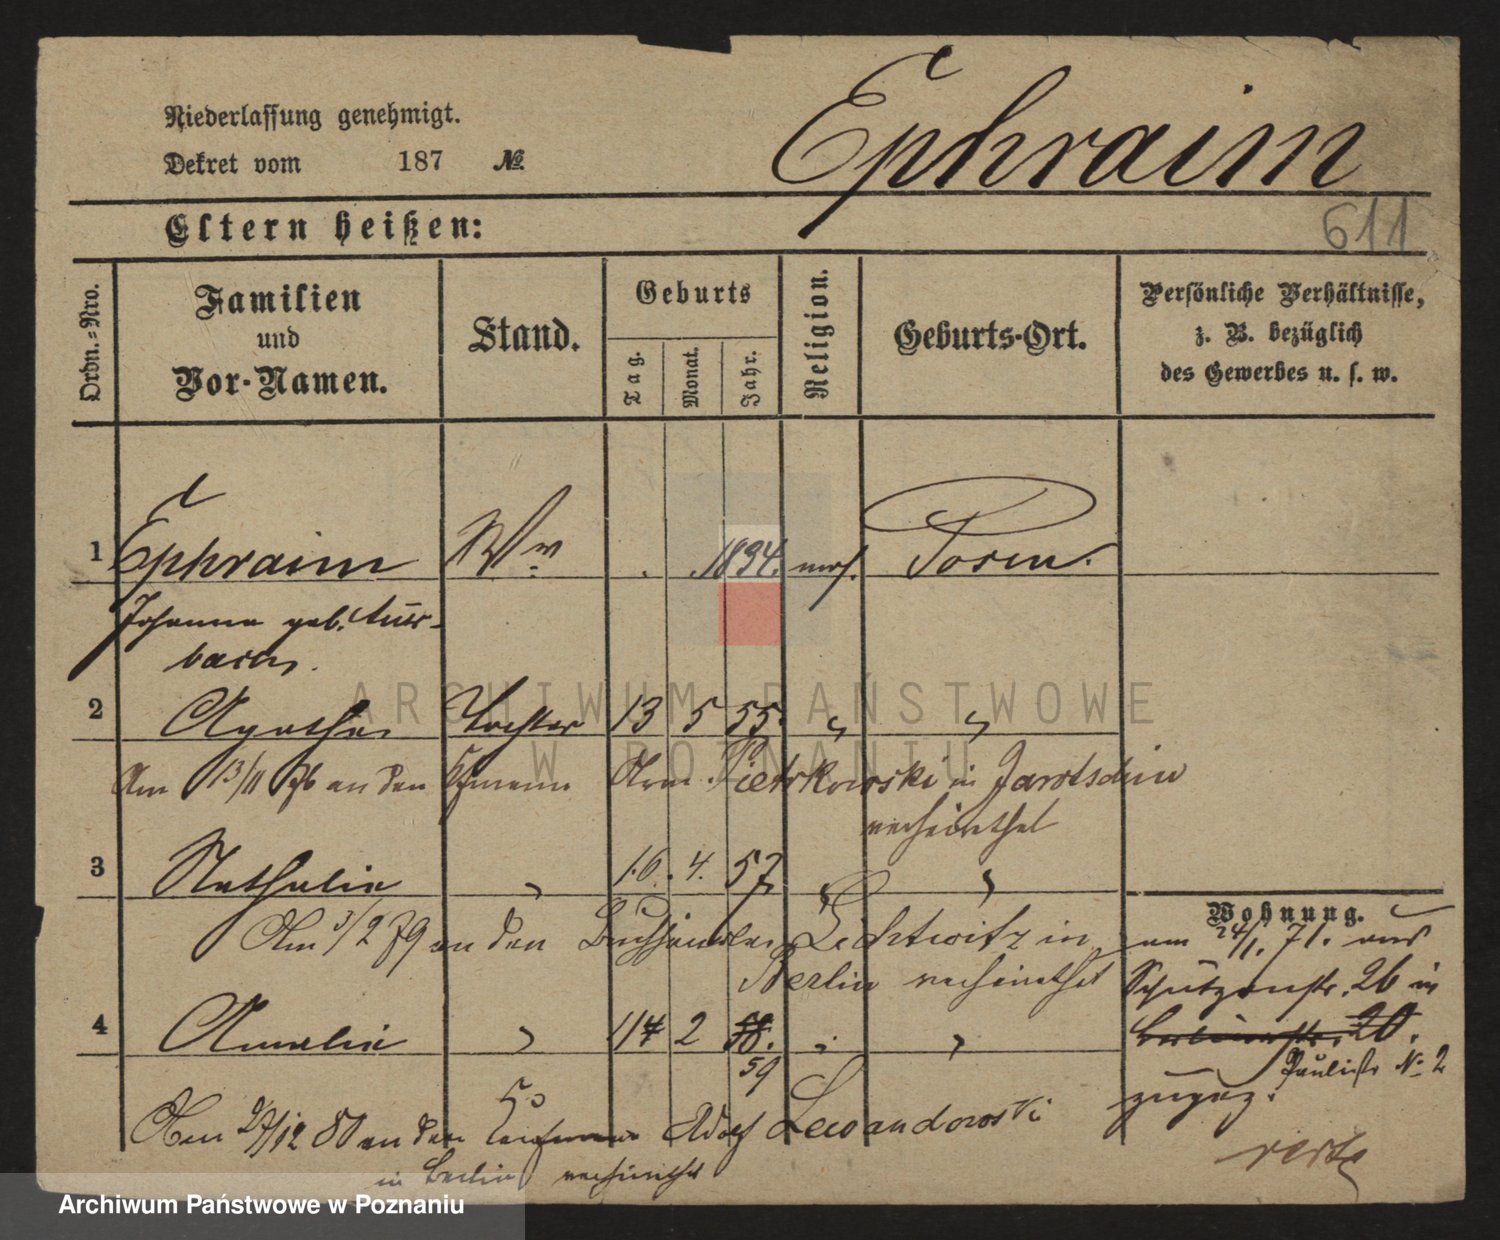 Niederlassung genehmigt.
Dekret vom 187 №
Ephraim
611
Eltern heißen:
Ordn.=Nro.
Familien
und
Vor-Namen.
Stand.
Geburts
Tag.
Monat.
Jahr.
Religion.
Geburts-Ort.
Persönliche Verhältnisse,
z. B. bezüglich
des Gewerbes u. s. w.
1 Ephraim Ww 1834. mos. Posen.
Johanna geb. Auer-
bach.
2 Agathe Tochter 13 5 55. " "
Am 13/11 76 an den Kfmann Pietrkowski in Jarotschin
verheirathet
3 Nathalie " 16. 4. 57 " "
Am 3/2 79 an den Buchhändler Lichtwitz in
Berlin verheirathet
4 Amalie " 2 58. " "
59
Am 27/12 80 an den Kaufmann Adolf Lewandowski
in Berlin verheirathet
Wohnung.
am 24/1. 71. aus
Schützenstr. 26 in
20.
Paulistr № 2
zugez.
ARCHIWUM PAŃSTWOWE
W POZNANIU
Archiwum Państwowe w Poznaniu